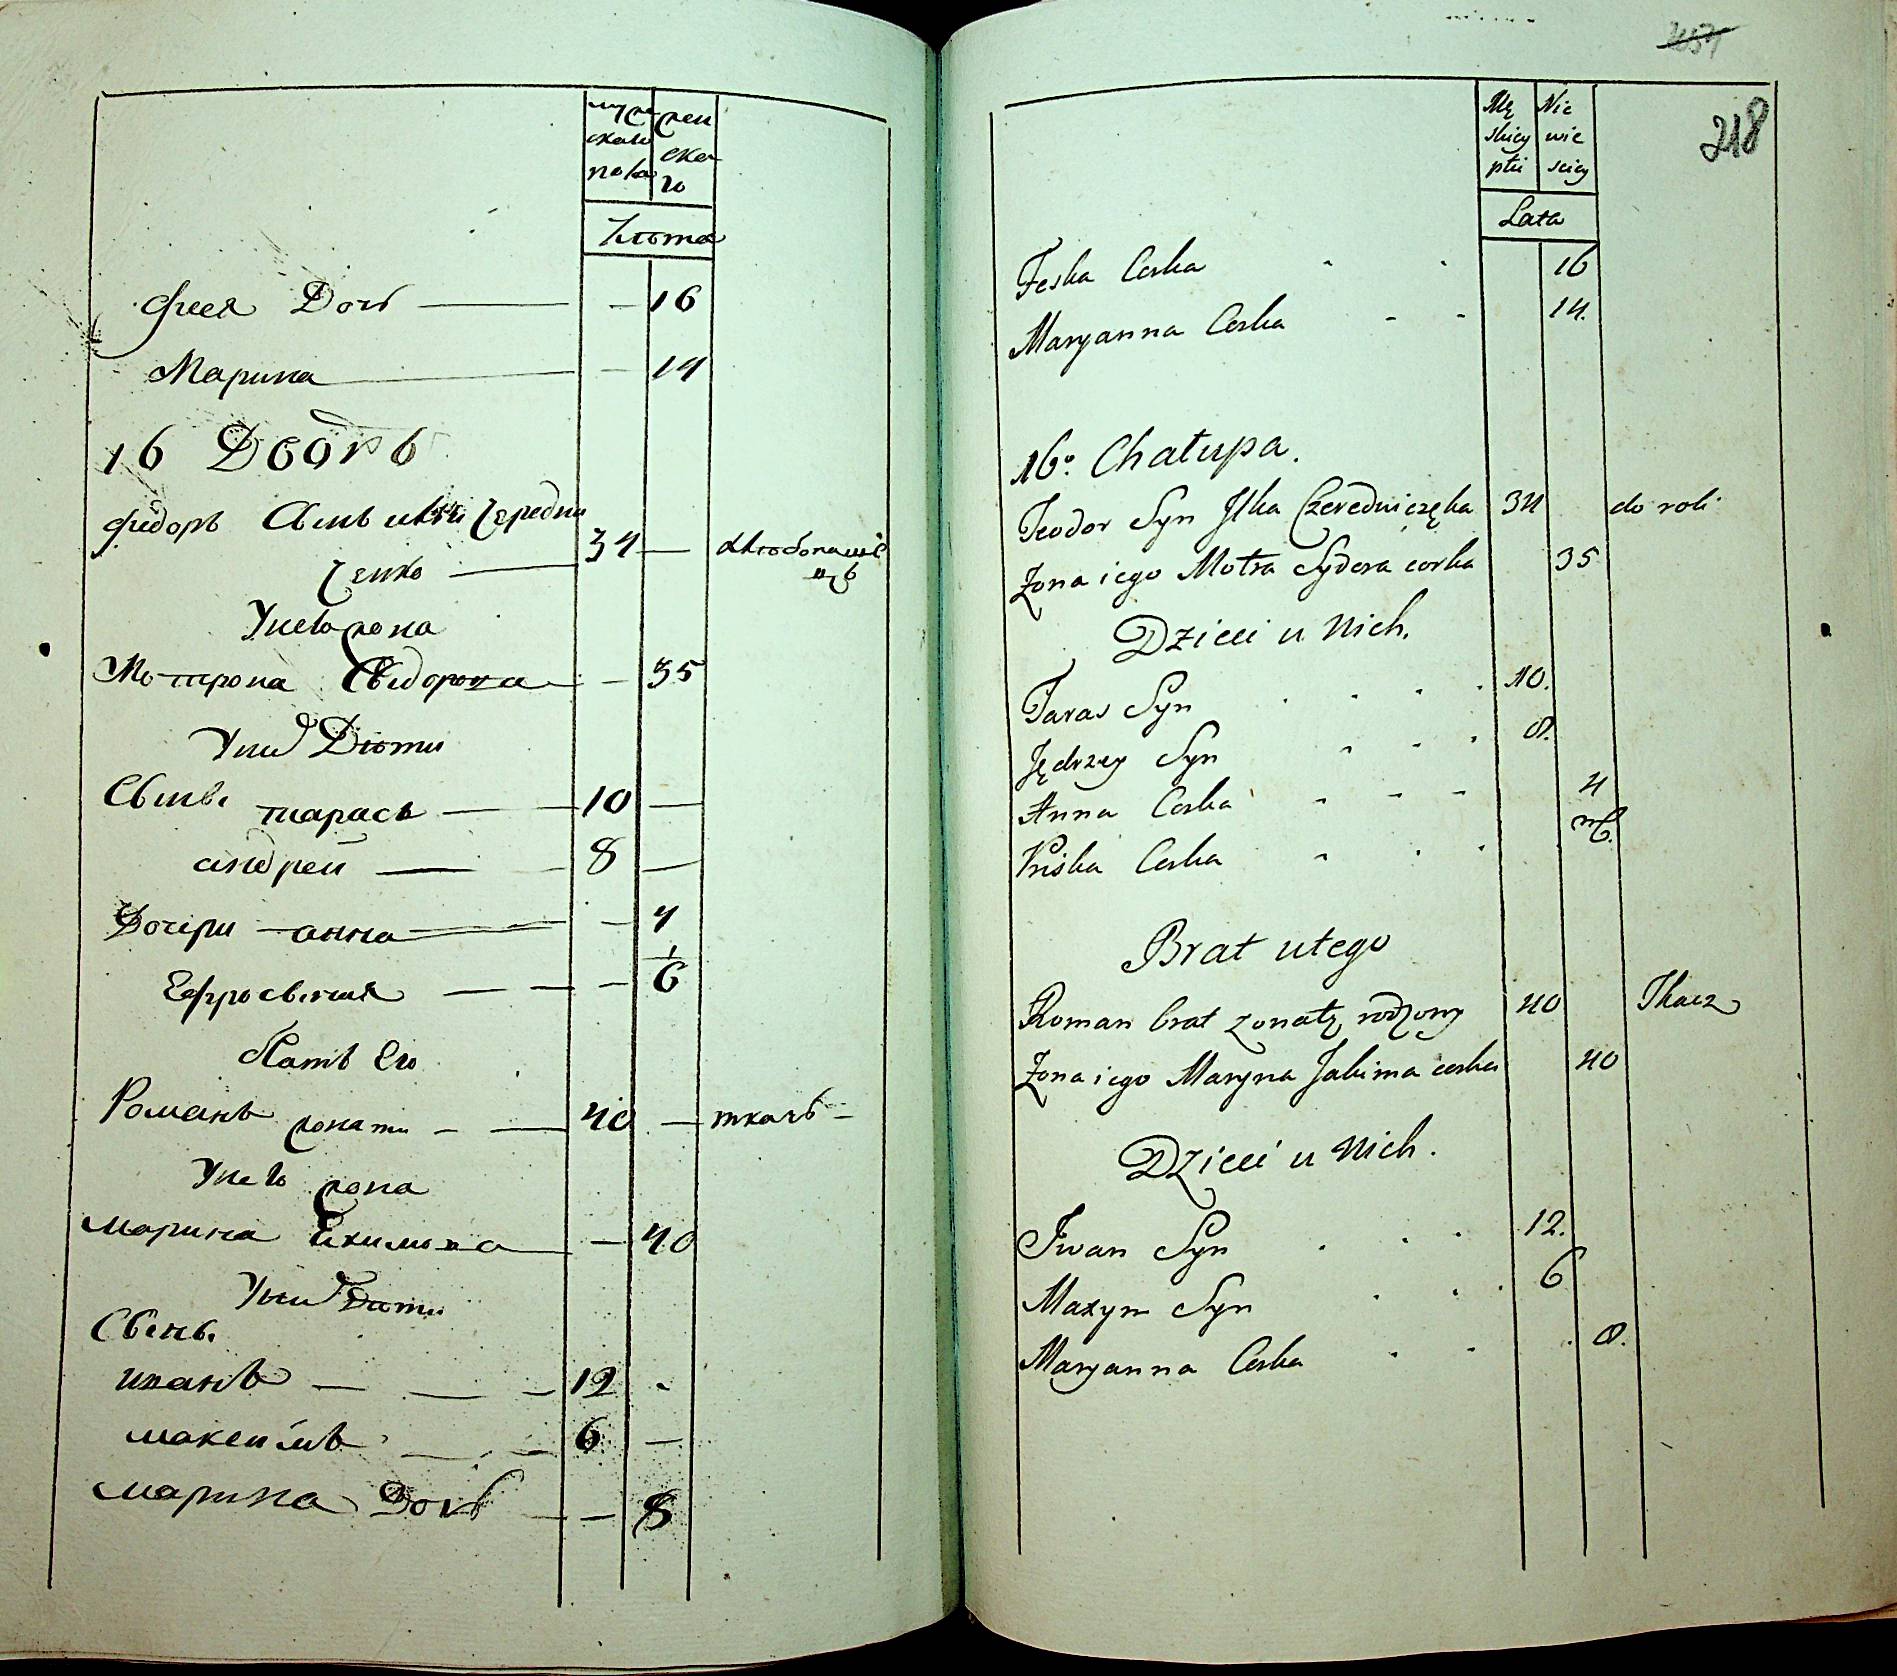 муже
ска
пола
жен
ска
го
Лѣта
Фесія Дочь — — 16
Марина — — 14
16 Дворъ
Федоръ Сынъ Чередни
ченко — 34 — хлебопаше
цъ
У него жона
Мотрона Сидорова — — 35
У них Дѣти
Сынъ тарасъ — 10 —
андрей — 8 —
Дочери анна — — 4
Ефросения — — — 1/6
Братъ Его
Романъ жонати — — 40 — ткачъ —
У него жона
марина Екимова — — 40
У них Дѣти
Сынъ
иванъ — — — 12 -
максимъ — — 6 —
марина Дочь — — 8
218
Mę
skiey
płci
Nie
wie
sciey
Lata
Feska Corka 16
Maryanna Corka 14.
16o. Chałupa.
Teodor Syn Ilka Czeredniczęka 34 do roli
Zona iego Motra Sydora corka 35
Dzieci u Nich.
Taras Syn 10.
Jędrzey Syn 8.
Anna Corka 4
Priska Corka m6.
Brat u tego
Roman brat zonatz rodzony 40 Tkacz
Zona iego Maryna Jakima corka 40
Dzieci u Nich.
Iwan Syn 12.
Maxym Syn 6
Maryanna Corka 8.